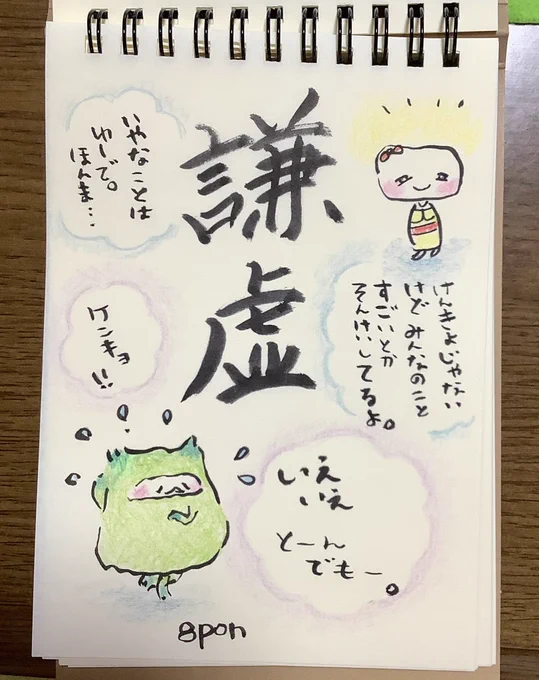 謙虚
いやなことは
ゆーで。
ほんま…
けんきょじゃない
けど みんなのこと
すごいとか
そんけいしてるよ。
ケンキョ
!!
いえ
いえ
とーん
でもー。
8pon